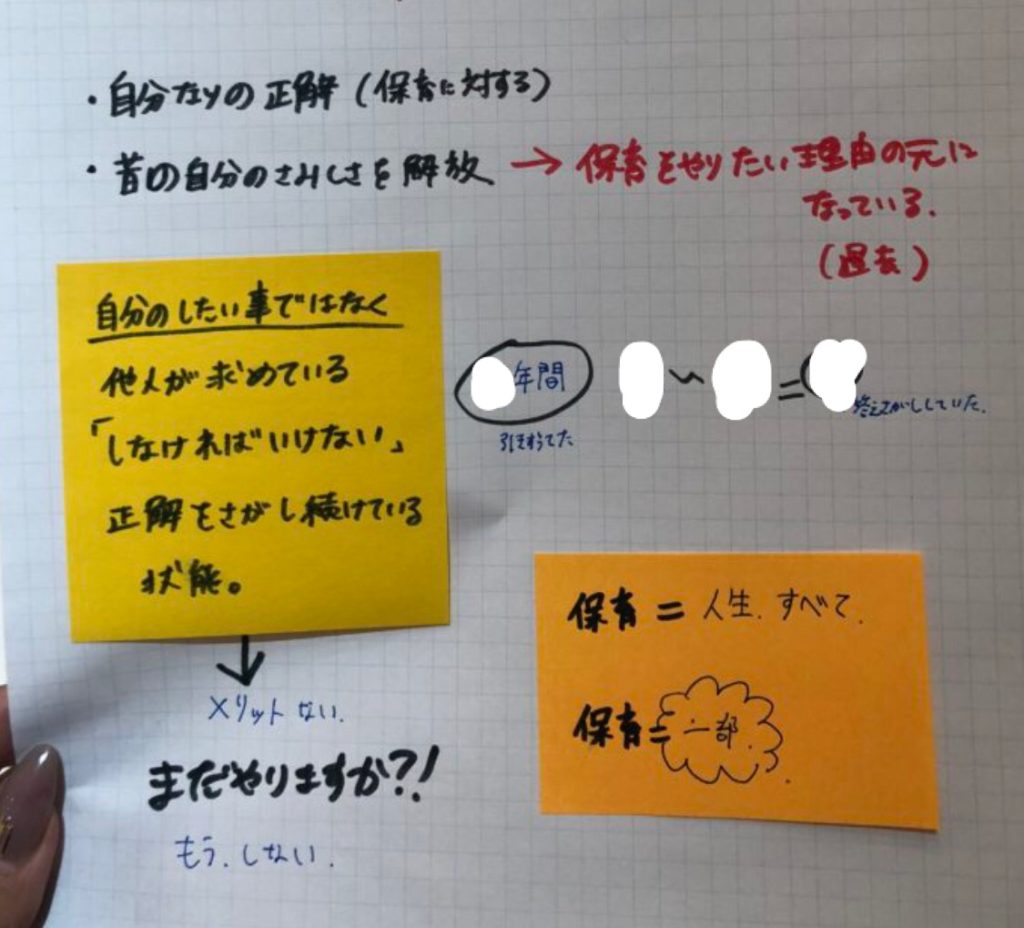 ・自分なりの正解(保育に対する)
・昔の自分のさみしさを解放 → 保育をやりたい理由の元に
なっている.
(過去)
自分のしたい事ではなく
他人が求めている
「しなければいけない」
正解をさがし続けている
状態。
年間
〜 =
答えさがししていた.
メリットない.
まだやりますか?!
もう.しない.
保育=人生.すべて.
保育=一部.